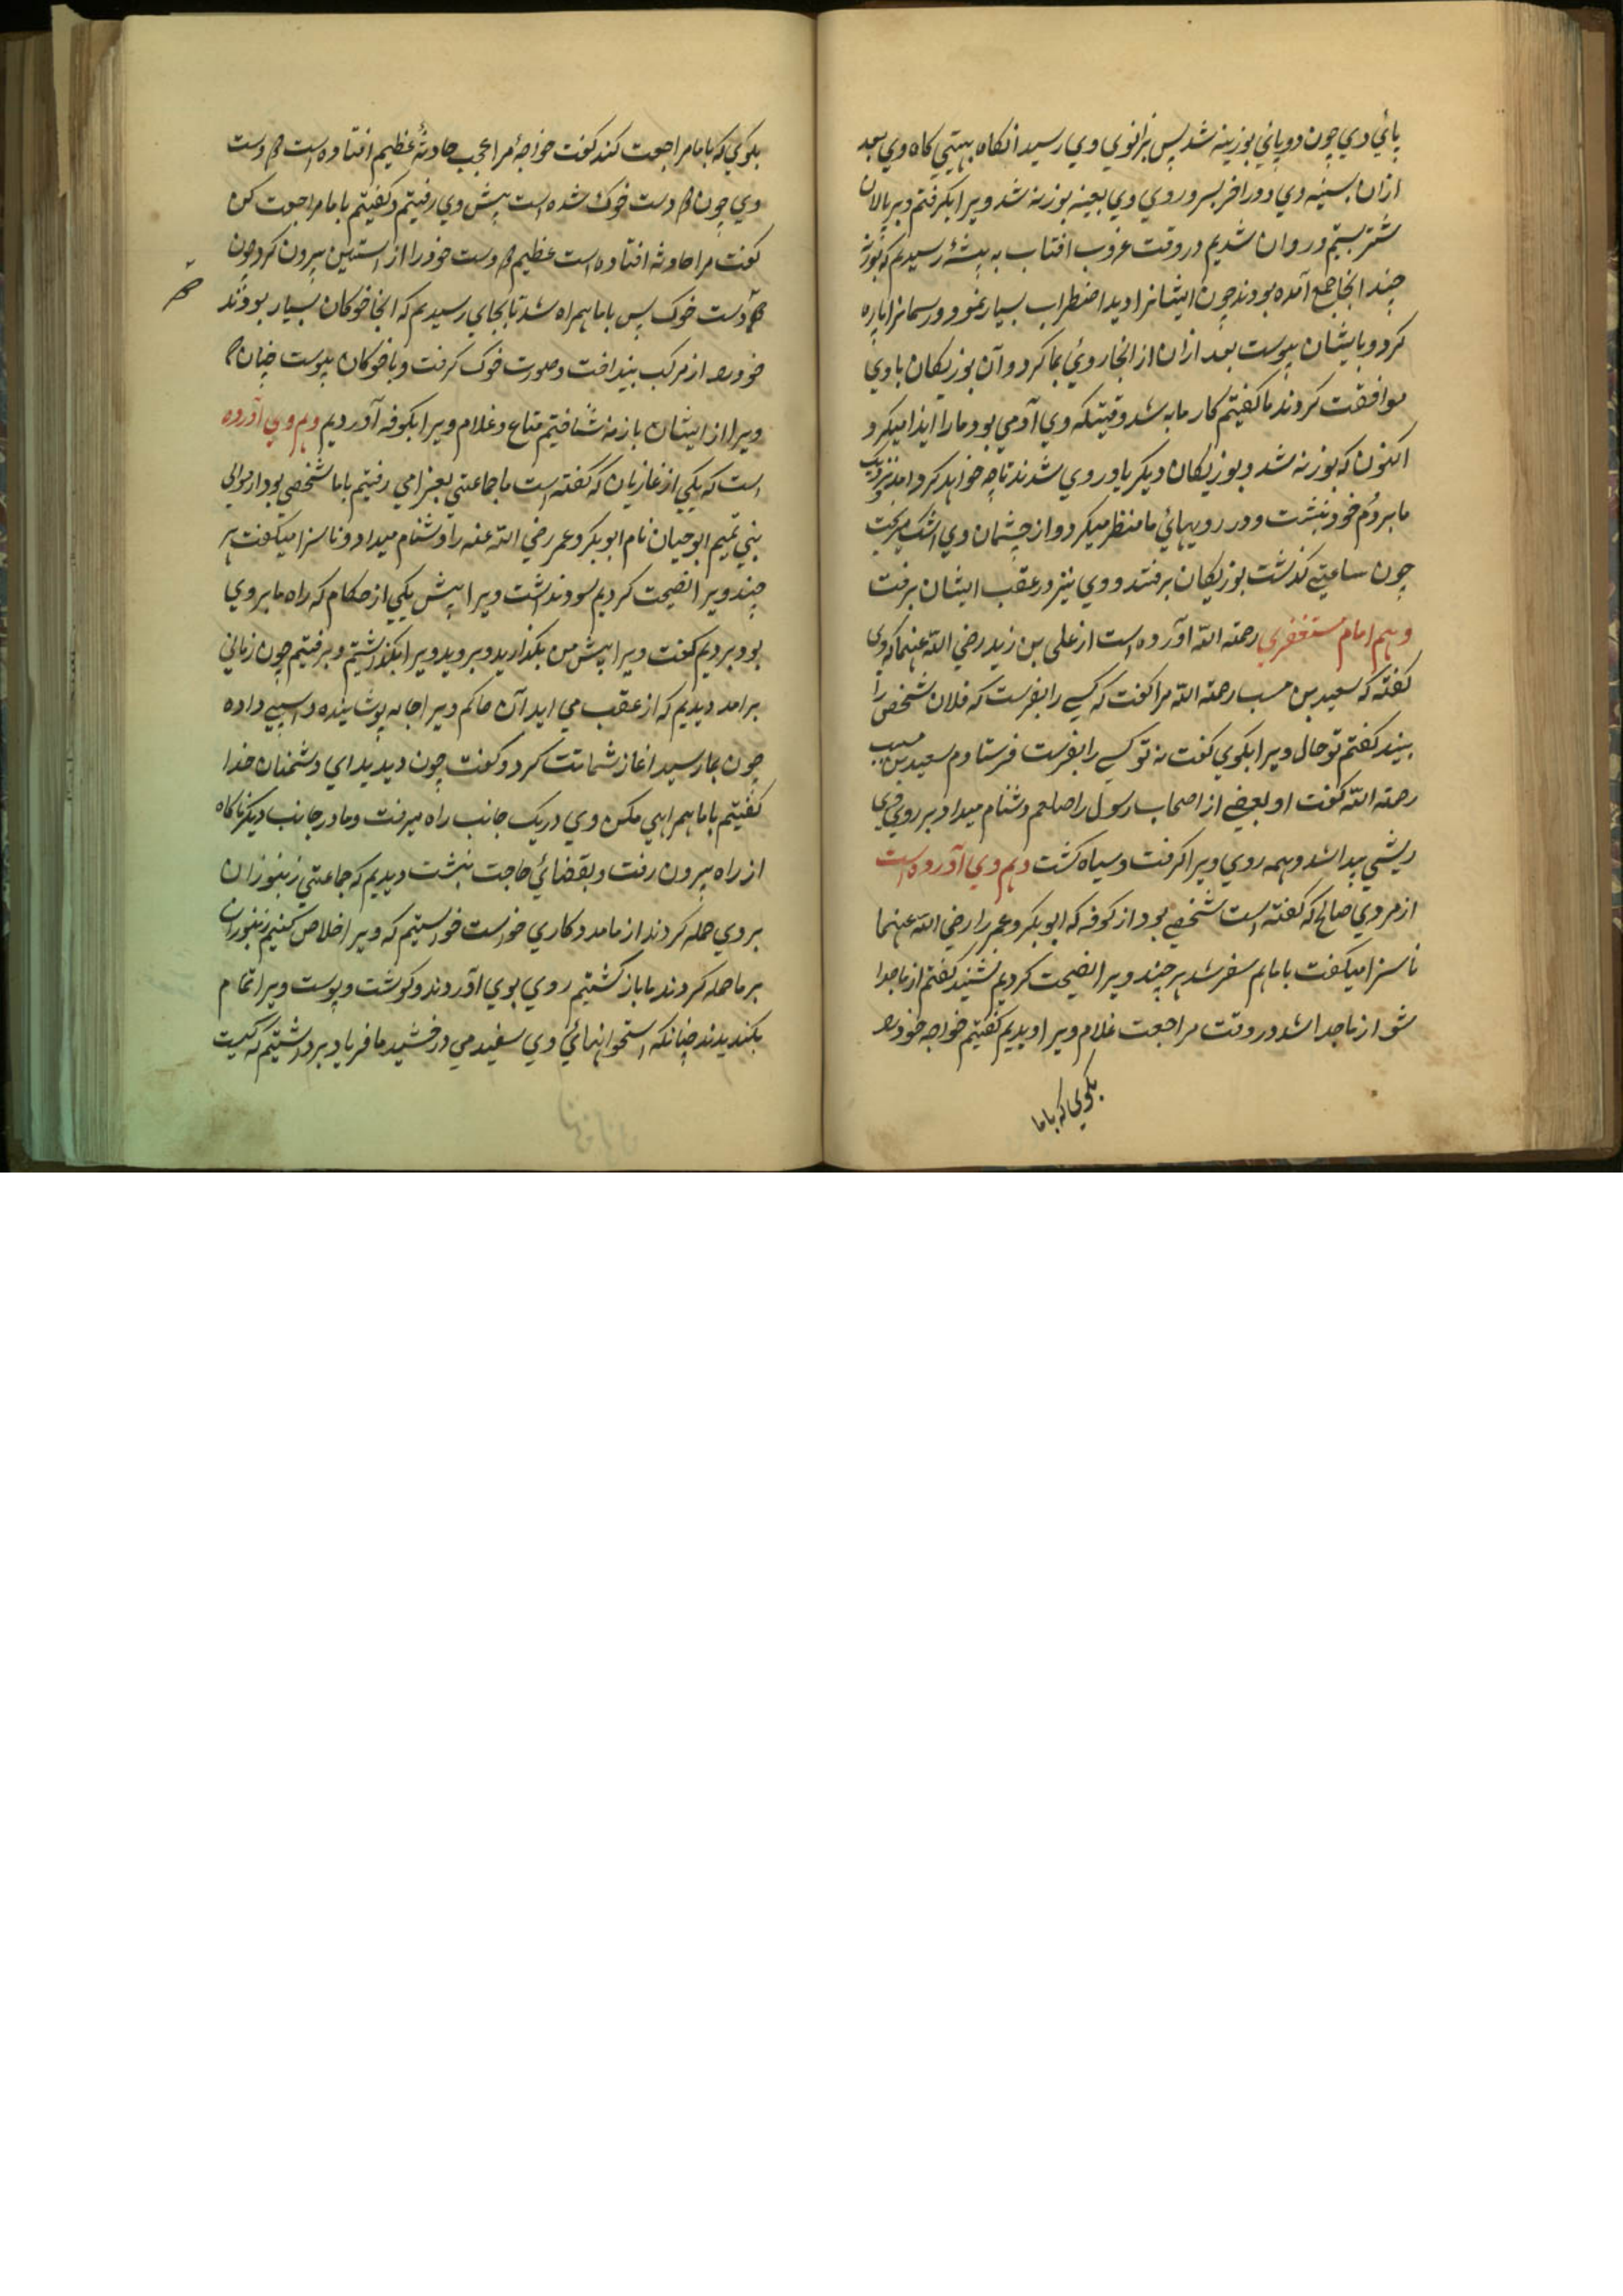 پائي وي چون دو پاني بوزينه شد پس بزانوي وي رسيد انكاه بهيتي كاه وي بعد
ازان بسينه وي و در اخر بسر و روي وي بعينه بوزنه شد ويرا بكرفتم و بر بالان
شتر بستيم و روان شديم در وقت غروب افتاب به بيشۀ رسيديم كه بوزنۀ
چند انجا جمع آمده بودند چون ايشانرا ديد اضطراب بسيار نمود و رسمانرا پاره
كرد و بايشان پيوست بعد ازان از انجا روئي بما كرد و آن بوزيكان با وي
موافقت كردند ما كفتيم كار ما به شد وقتيكه وي آدمي بود ما را ايذا ميكرد
اكنون كه بوزنه شد و بوزيكان ديكر ياور وي شدند تا چه خواهد كرد امد نزديك
ما بر دُم خود بنشست و در رويهائي ما منظر ميكرد و از چشمان وي اشك ميريخت
چون ساعتي كذشت بوزيكان برفتند و وي نيز در عقب ايشان برفت
و هم امام مستغفري رحمة الله آورده است از علي بن زيد رضي الله عنهما كه وي
كفته كه سعيد بن مسيب رحمة الله مرا كفت كه كسي را بفرست كه فلان شخص را
بيند كفتم تو حال ويرا بكوي كفت نه تو كسي را بفرست فرستادم سعيد بن مسيب
رحمة الله كفت او بعضي از اصحاب رسول را صلعم دشنام ميداد بر روي وي
ريشي پيدا شد و همه روي ويرا كرفت و سياه كشت و هم وي آورده است
از مروي صالح كه كفته است شخصي بود از كوفه كه ابو بكر و عمر را رضي الله عنهما
ناسزا ميكفت با ما هم سفر شد هر چند ويرا نصيحت كرديم نشنيد كفتم از ما جدا
شو از ما جدا شد در وقت مراجعت غلام ويرا ديديم كفتيم خواجه خود را
بكوي كه با ما
بكوي كه با ما مراجعت كند كفت خواجۀ مرا عجب حادثۀ عظيم افتاده است هر دو دست
وي چون هر دو دست خوك شده است پيش وي رفتيم و كفتيم با ما مراجعت كن
كفت مرا حادثه افتاده است عظيم هر دو دست خود را از استين بيرون كرد چون
هر دو دست خوك پس با ما همراه شد تا بجاي رسيديم كه انجا خوكان بسيار بودند
خود را از مركب بينداخت و صورت خوك كرفت و با خوكان پيوست چنان كه
ويرا از ايشان باز نه شناختيم متاع و غلام ويرا بكوفه آورديم و هم وي آورده
است كه يكي از غازيان كه كفته است ما جماعتي بغزا مي رفتيم با ما شخصي بود از موالي
بني تميم ابو حيان نام ابو بكر و عمر رضي الله عنه را دشنام ميداد و ناسزا ميكفت هر
چند ويرا نصيحت كرديم سود نداشت ويرا پيش يكي از حكام كه راه ما بر وي
بود برديم كفت ويرا پيش من بكذاريد و برويد ويرا بكذاشتيم و برفتيم چون زماني
برامد ديديم كه از عقب مي ايد آن حاكم ويرا جامه پوشانيده و اسپي داده
چون بما رسيد اغاز شماتت كرد و كفت چون ديديد اي دشمنان خدا
كفتيم با ما همراهي مكن وي در يك جانب راه ميرفت و ما در جانب ديكر ناكاه
از راه بيرون رفت و بقضائي حاجت بنشست ديديم كه جماعتي زنبوران
بر وي حمله كردند از ما مدد كاري خواست خواستيم كه ويرا خلاص كنيم زنبوران
بر ما حمله كردند ما باز كشتيم روي بوي آوردند و كوشت و پوست ويرا تمام
بكنديدند چنانكه استخوانهائي وي سفيد مي درخشيد ما فرياد برداشتيم كه كيست